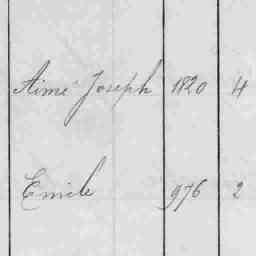 Aimé Joseph 1820 4
Emile 976 2